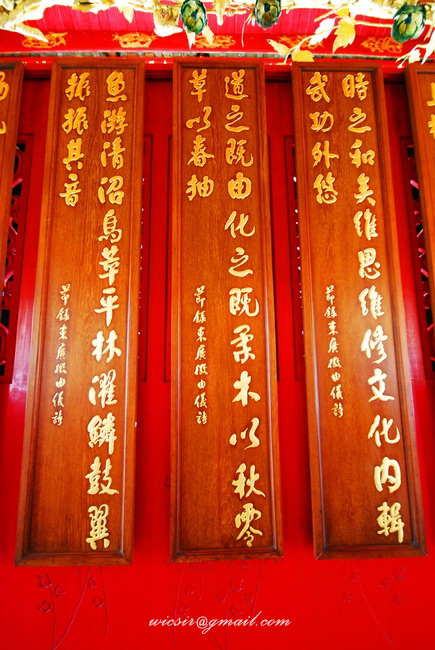 時之和矣維思維修文化內輯
武功外悠
節錄束廣微由儀詩
道之既由化之既柔木以秋零
草以春抽
節錄束廣微由儀詩
魚游清沼鳥萃平林濯鱗鼓翼
振振其音
節錄束廣微由儀詩
wicsir@gmail.com